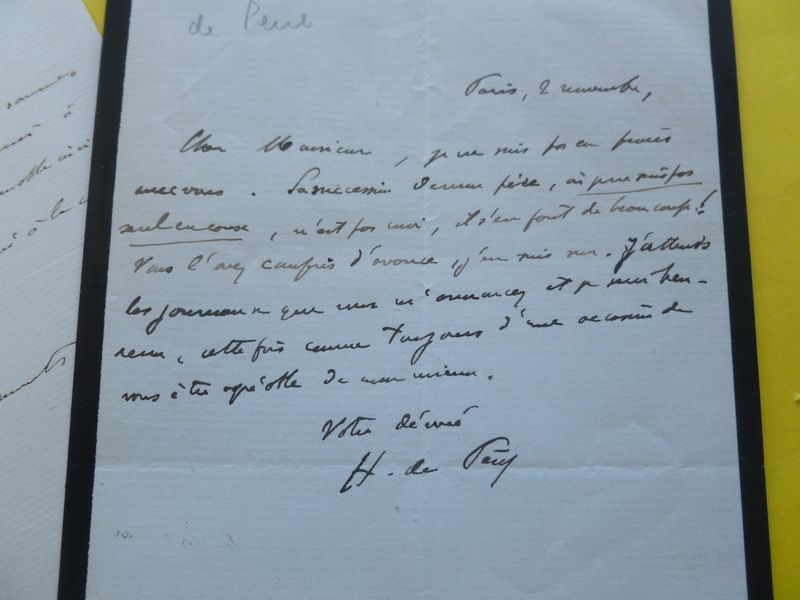 de Pene
Paris, 2 novembre,
Cher Monsieur, je ne suis pas en procès
avec vous. La succession de mon père, où je ne suis pas
seul en cause, n'est pas moi, il s'en faut de beaucoup!
Vous l'avez compris d'avance, j'en suis sûr. J'attends
les journaux que vous m'annoncez et je suis heu-
reux, cette fois comme toujours d'une occasion de
vous être agréable de mon mieux.
Votre dévoué
H. de Pène
sommes
à